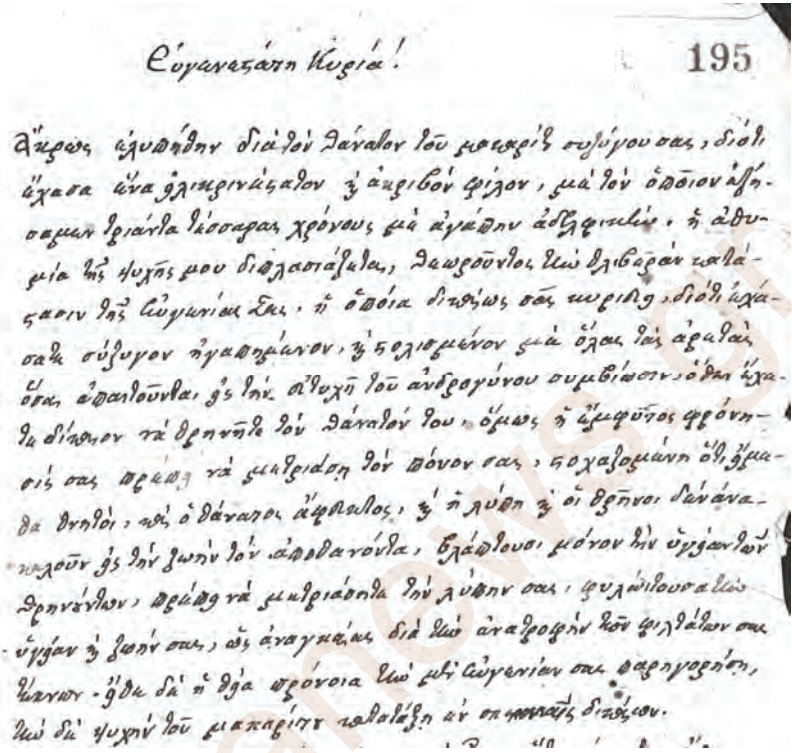 195
Εὐγενεςάτη Κυρία!
Ἄκρως ἐλυπήθην διὰ τὸν θάνατον τοῦ μακαρίτȣ συζύγου σας, διότι
ἔχασα ἕνα εἰλικρινέςατον ϗ ἀκριβὸν φίλον, μὲ τὸν ὁποῖον ἐζή-
σαμεν τριάντα τέσσαρας χρόνους μὲ ἀγάπην ἀδελφικὴν. ἡ ἀθυ-
μία τῆς ψυχῆς μου διπλασιάζεται, θεωροῦντος τὴν θλιβερὰν κατά-
ςασιν τῆς Εὐγενίας Σας, ἡ ὁποία δικαίως σᾶς κυριεύει, διότι ἐχά-
σατε σύζυγον ἠγαπημένον, ϗ ςολισμένον μὲ ὅλας τὰς ἀρετὰς
ὅσαι ἀπαιτοῦνται εἰς τὴν εὐτυχῆ τοῦ ἀνδρογύνου συμβίωσιν. ὅθεν ἔχε-
τε δίκαιον νὰ θρηνῆτε τὸν θάνατόν του. ὅμως ἡ ἔμφυτος φρόνη-
σίς σας πρέπει νὰ μετριάσῃ τὸν πόνον σας, ςοχαζομένη ὅτι εἴμε-
θα θνητοὶ, καὶ ὁ θάνατος ἄφευκτος, ϗ ἡ λύπη ϗ οἱ θρῆνοι δὲν ἀνα-
καλοῦν εἰς τὴν ζωὴν τὸν ἀποθανόντα, βλάπτουσι μόνον τὴν ὑγείαν τῶν
θρηνούντων, πρέπει νὰ μετριάσητε τὴν λύπην σας, φυλάττουσα τὴν
ὑγείαν ϗ ζωήν σας, ὡς ἀναγκαίας διὰ τὴν ἀνατροφὴν τῶν φιλτάτων σας
τέκνων. εἴθε δὲ ἡ θεία πρόνοια τὴν μὲν Εὐγενίαν σας παρηγορήσῃ,
τὴν δὲ ψυχὴν τοῦ μακαρίτου κατατάξῃ ἐν σκηναῖς δικαίων.
anews.gr